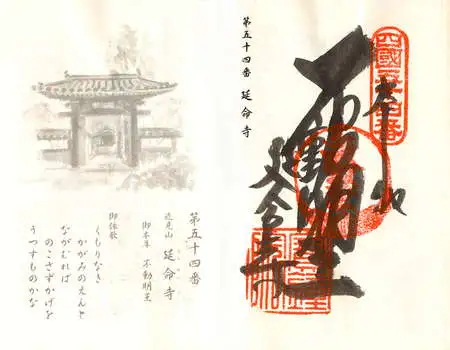 四國五十四番
不動明王
延命寺
第五十四番 延命寺
第五十四番
近見山 延命寺
御本尊 不動明王
御詠歌
くもりなき
かがみのえんと
ながむれば
のこさずかげを
うつすものかな